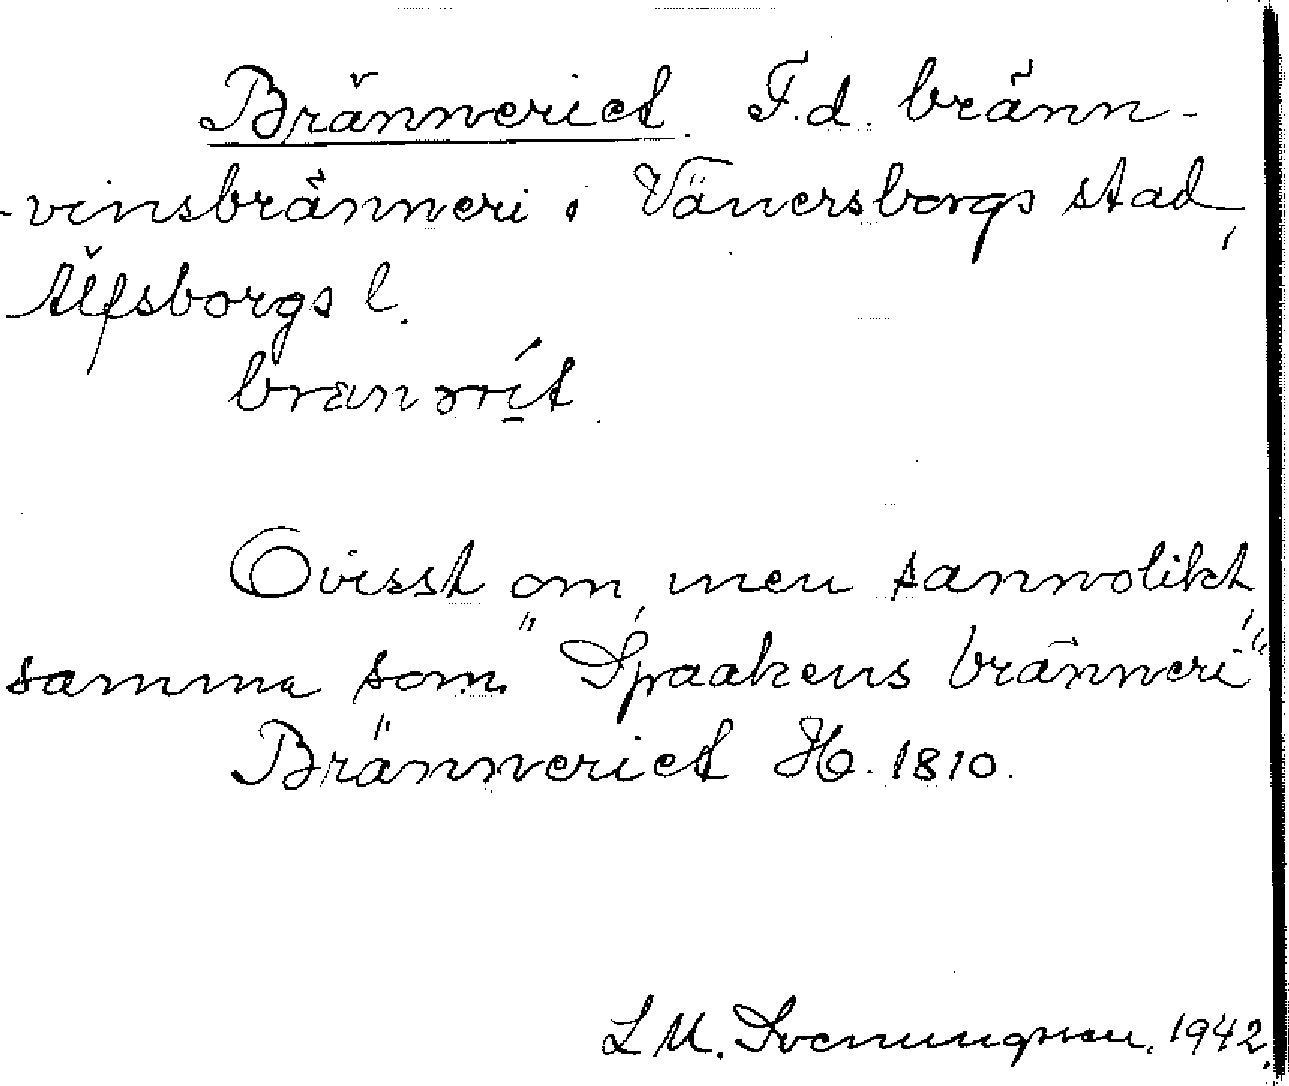 Bränneriet. F.d. bränn-
-vinsbränneri i Vänersborgs stad,
Älfsborgs l.

Ovisst om, men sannolikt,
samma som "Spaakens bränneri"
Bränneriet H. 1810.
L M. Svenungsson. 1942.